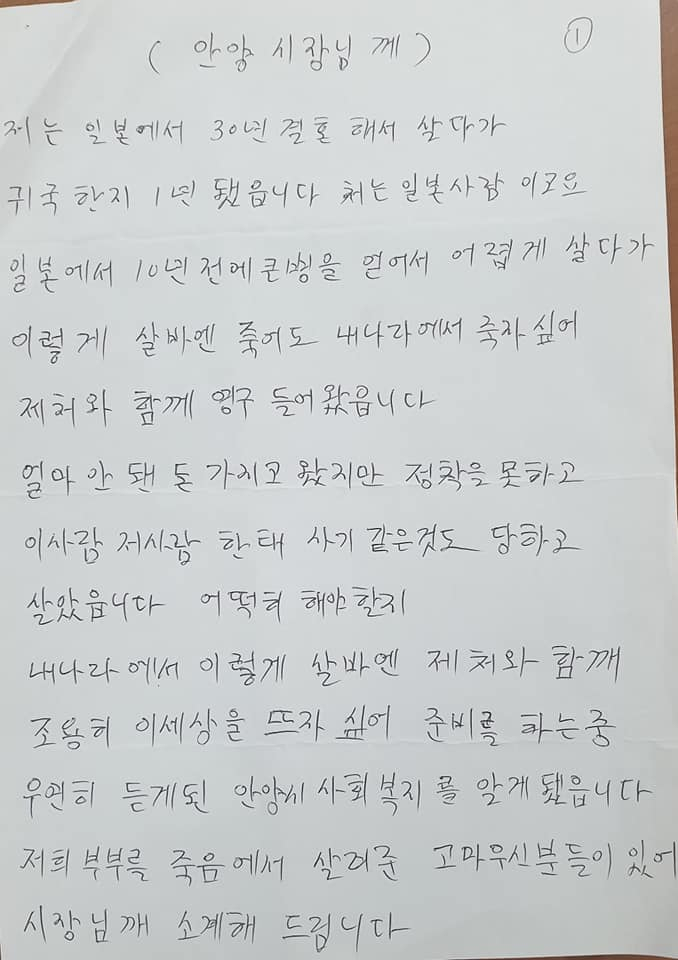 ( 안양 시장님 께 )
1
저는 일본에서 30년 결혼 해서 살다가
귀국 한지 1년 됐읍니다 처는 일본사람 이고요
일본에서 10년전에 큰병을 얻어서 어렵게 살다가
이렇게 살바엔 죽어도 내나라에서 죽자 싶어
제처와 함께 영구 들어왔읍니다
얼마 안 됀 돈 가지고 왔지만 정착을 못하고
이사람 저사람 한태 사기 같은것도 당하고
살았읍니다 어떡허 해야할지
내나라에서 이렇게 살바엔 제처와 함깨
조용히 이세상을 뜨자 싶어 준비를 하는중
우연히 듣게된 안양시 사회복지를 알게됐읍니다
저희부부를 죽음에서 살려준 고마우신분들이 있어
시장님깨 소계해 드립니다